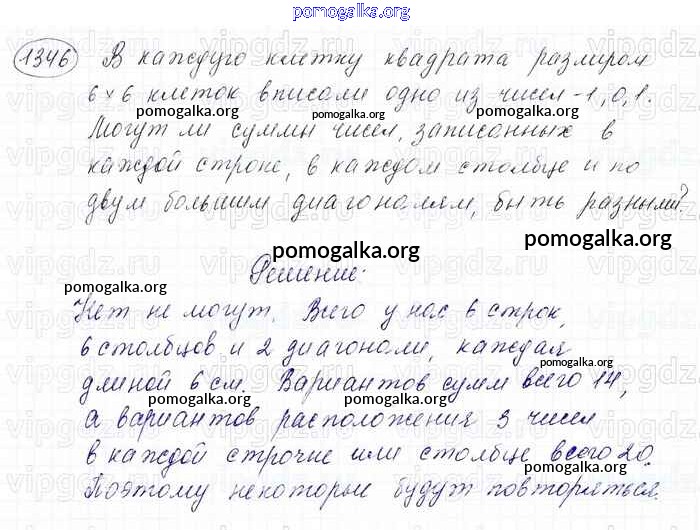 pomogalka.org
1346 В каждую клетку квадрата размером
6×6 клеток вписали одно из чисел -1, 0, 1.
pomogalka.org pomogalka.org pomogalka.org
Могут ли суммы чисел, записанных в
каждой строке, в каждом столбце и по
pomogalka.org
двум большим диагоналям, быть разными?
pomogalka.org pomogalka.org
Решение:
pomogalka.org
Нет не могут. Всего у нас 6 строк,
6 столбцов и 2 диагонали, каждая
pomogalka.org
длиной 6 см. Вариантов сумм всего 14,
pomogalka.org pomogalka.org
а вариантов расположения 3 чисел
в каждой строчке или столбце всего 20.
pomogalka.org pomogalka.org
Поэтому некоторые будут повторяться.